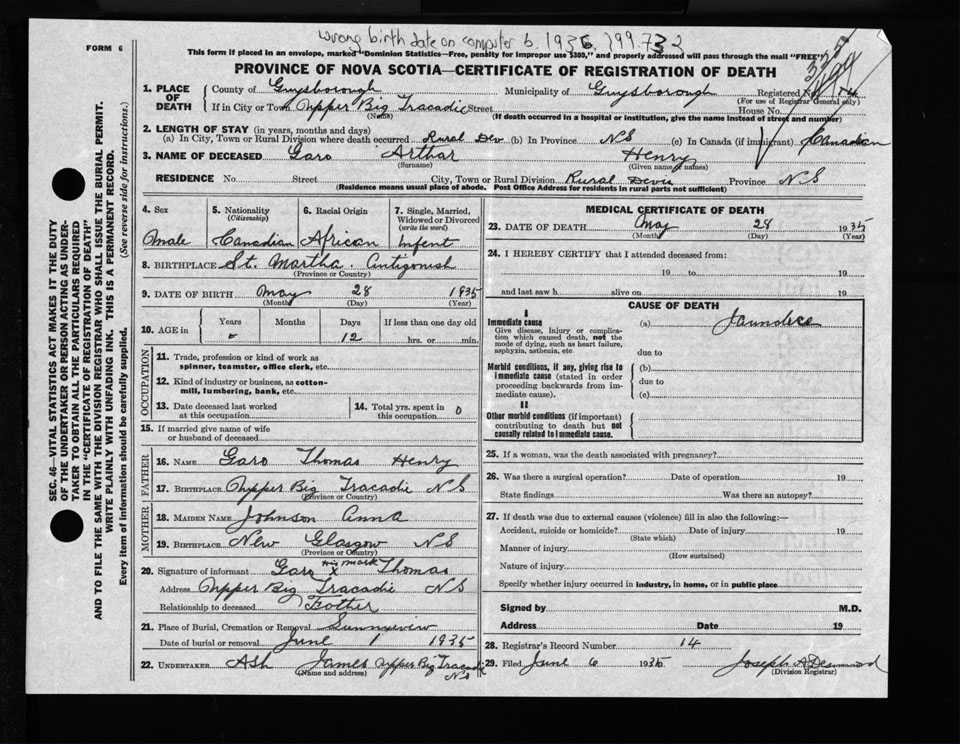 wrong birth date on computer b. 1935. 399.732
FORM 6
This form if placed in an envelope, marked "Dominion Statistics—Free, penalty for improper use $300," and properly addressed will pass through the mail "FREE"
PROVINCE OF NOVA SCOTIA—CERTIFICATE OF REGISTRATION OF DEATH
1. PLACE OF DEATH County of Guysborough Municipality of Guysborough Registered No.
(For use of Registrar General only)
If in City or Town Upper Big Tracadie Street House No.
(Name) (If death occurred in a hospital or institution, give the name instead of street and number)
2. LENGTH OF STAY (in years, months and days)
(a) In City, Town or Rural Division where death occurred Rural Dev (b) In Province NS (c) In Canada (if immigrant) Canadian
3. NAME OF DECEASED Garo Arthar Henry
(Surname) (Given name or names)
RESIDENCE No. Street City, Town or Rural Division Rural Devis Province NS
(Residence means usual place of abode. Post Office Address for residents in rural parts not sufficient)
SEC. 46—VITAL STATISTICS ACT MAKES IT THE DUTY
OF THE UNDERTAKER OR PERSON ACTING AS UNDER-
TAKER TO OBTAIN ALL THE PARTICULARS REQUIRED
IN THE "CERTIFICATE OF REGISTRATION OF DEATH"
AND TO FILE THE SAME WITH THE DIVISION REGISTRAR WHO SHALL ISSUE THE BURIAL PERMIT.
WRITE PLAINLY WITH UNFADING INK. THIS IS A PERMANENT RECORD.
Every item of information should be carefully supplied. (See reverse side for instructions.)
4. Sex
Male
5. Nationality
(Citizenship)
Canadian
6. Racial Origin
African
7. Single, Married,
Widowed or Divorced
(write the word)
Infent
8. BIRTHPLACE St. Martha. Antigonish
(Province or Country)
9. DATE OF BIRTH May 28 1935
(Month) (Day) (Year)
10. AGE in Years Months Days If less than one day old
0 12 hrs. or min.
OCCUPATION
11. Trade, profession or kind of work as
spinner, teamster, office clerk, etc.
12. Kind of industry or business, as cotton-
mill, lumbering, bank, etc.
13. Date deceased last worked
at this occupation
14. Total yrs. spent in
this occupation 0
15. If married give name of wife
or husband of deceased
FATHER
16. NAME Garo Thomas Henry
17. BIRTHPLACE Upper Big Tracadie NS
(Province or Country)
MOTHER
18. MAIDEN NAME Johnson Anna
19. BIRTHPLACE New Glasgow NS
(Province or Country)
20. Signature of informant Garo his X mark Thomas
Address Upper Big Tracadie NS
Relationship to deceased Fother
21. Place of Burial, Cremation or Removal Sunnyview
Date of burial or removal June 1 1935
22. UNDERTAKER Ash James Upper Big Tracadie
(Name and address) NS
MEDICAL CERTIFICATE OF DEATH
23. DATE OF DEATH May 28 1935
(Month) (Day) (Year)
24. I HEREBY CERTIFY that I attended deceased from:
19 to 19
and last saw h alive on 19
CAUSE OF DEATH
I
Immediate cause
Give disease, injury or complica-
tion which caused death, not the
mode of dying, such as heart failure,
asphyxia, asthenia, etc.
(a) Jaundice
due to
Morbid conditions, if any, giving rise to
immediate cause (stated in order
proceeding backwards from im-
mediate cause).
(b)
due to
(c)
II
Other morbid conditions (if important)
contributing to death but not
causally related to immediate cause.
25. If a woman, was the death associated with pregnancy?
26. Was there a surgical operation? Date of operation 19
State findings Was there an autopsy?
27. If death was due to external causes (violence) fill in also the following:—
Accident, suicide or homicide? Date of injury 19
(State which)
Manner of injury
(How sustained)
Nature of injury
Specify whether injury occurred in industry, in home, or in public place
Signed by M.D.
Address Date 19
28. Registrar's Record Number 14
29. Filed June 6 1935 Joseph A Desmond
(Division Registrar)